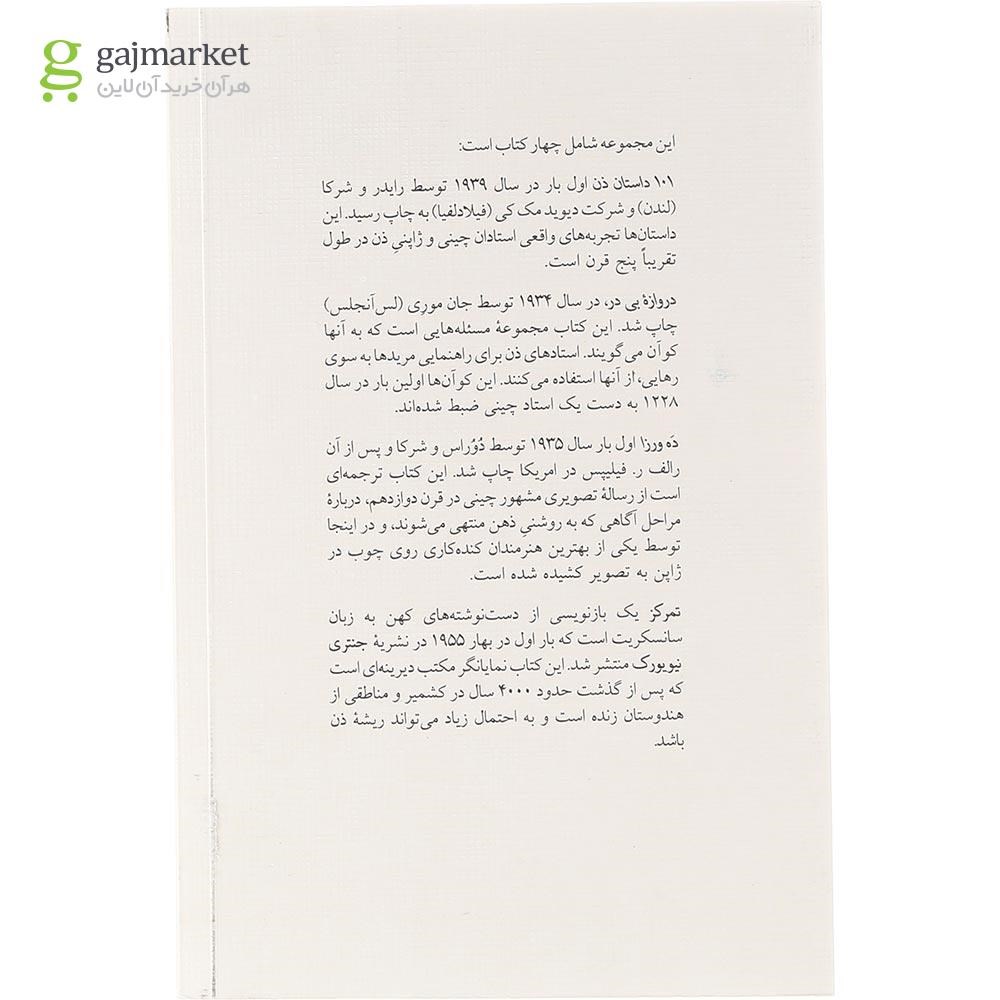 gajmarket
هرآن خرید آن لاین
این مجموعه شامل چهار کتاب است:
۱۰۱ داستان ذن اول بار در سال ۱۹۳۹ توسط رایدر و شرکا
(لندن) و شرکت دیوید مک کی (فیلادلفیا) به چاپ رسید. این
داستان‌ها تجربه‌های واقعی استادان چینی و ژاپنیِ ذن در طول
تقریباً پنج قرن است.
دروازهٔ بی در، در سال ۱۹۳۴ توسط جان موری (لس‌آنجلس)
چاپ شد. این کتاب مجموعهٔ مسئله‌هایی است که به آنها
کوآن می‌گویند. استادهای ذن برای راهنمایی مریدها به سوی
رهایی، از آنها استفاده می‌کنند. این کوآن‌ها اولین بار در سال
۱۲۲۸ به دست یک استاد چینی ضبط شده‌اند.
دَه ورزا اول بار سال ۱۹۳۵ توسط دوُراس و شرکا و پس از آن
رالف ر. فیلیپس در امریکا چاپ شد. این کتاب ترجمه‌ای
است از رسالهٔ تصویری مشهور چینی در قرن دوازدهم، دربارهٔ
مراحل آگاهی که به روشنیِ ذهن منتهی می‌شوند، و در اینجا
توسط یکی از بهترین هنرمندان کنده‌کاری روی چوب در
ژاپن به تصویر کشیده شده است.
تمرکز یک بازنویسی از دست‌نوشته‌های کهن به زبان
سانسکریت است که بار اول در بهار ۱۹۵۵ در نشریهٔ جنتری
نیویورک منتشر شد. این کتاب نمایانگر مکتب دیرینه‌ای است
که پس از گذشت حدود ۴۰۰۰ سال در کشمیر و مناطقی از
هندوستان زنده است و به احتمال زیاد می‌تواند ریشهٔ ذن
باشد.